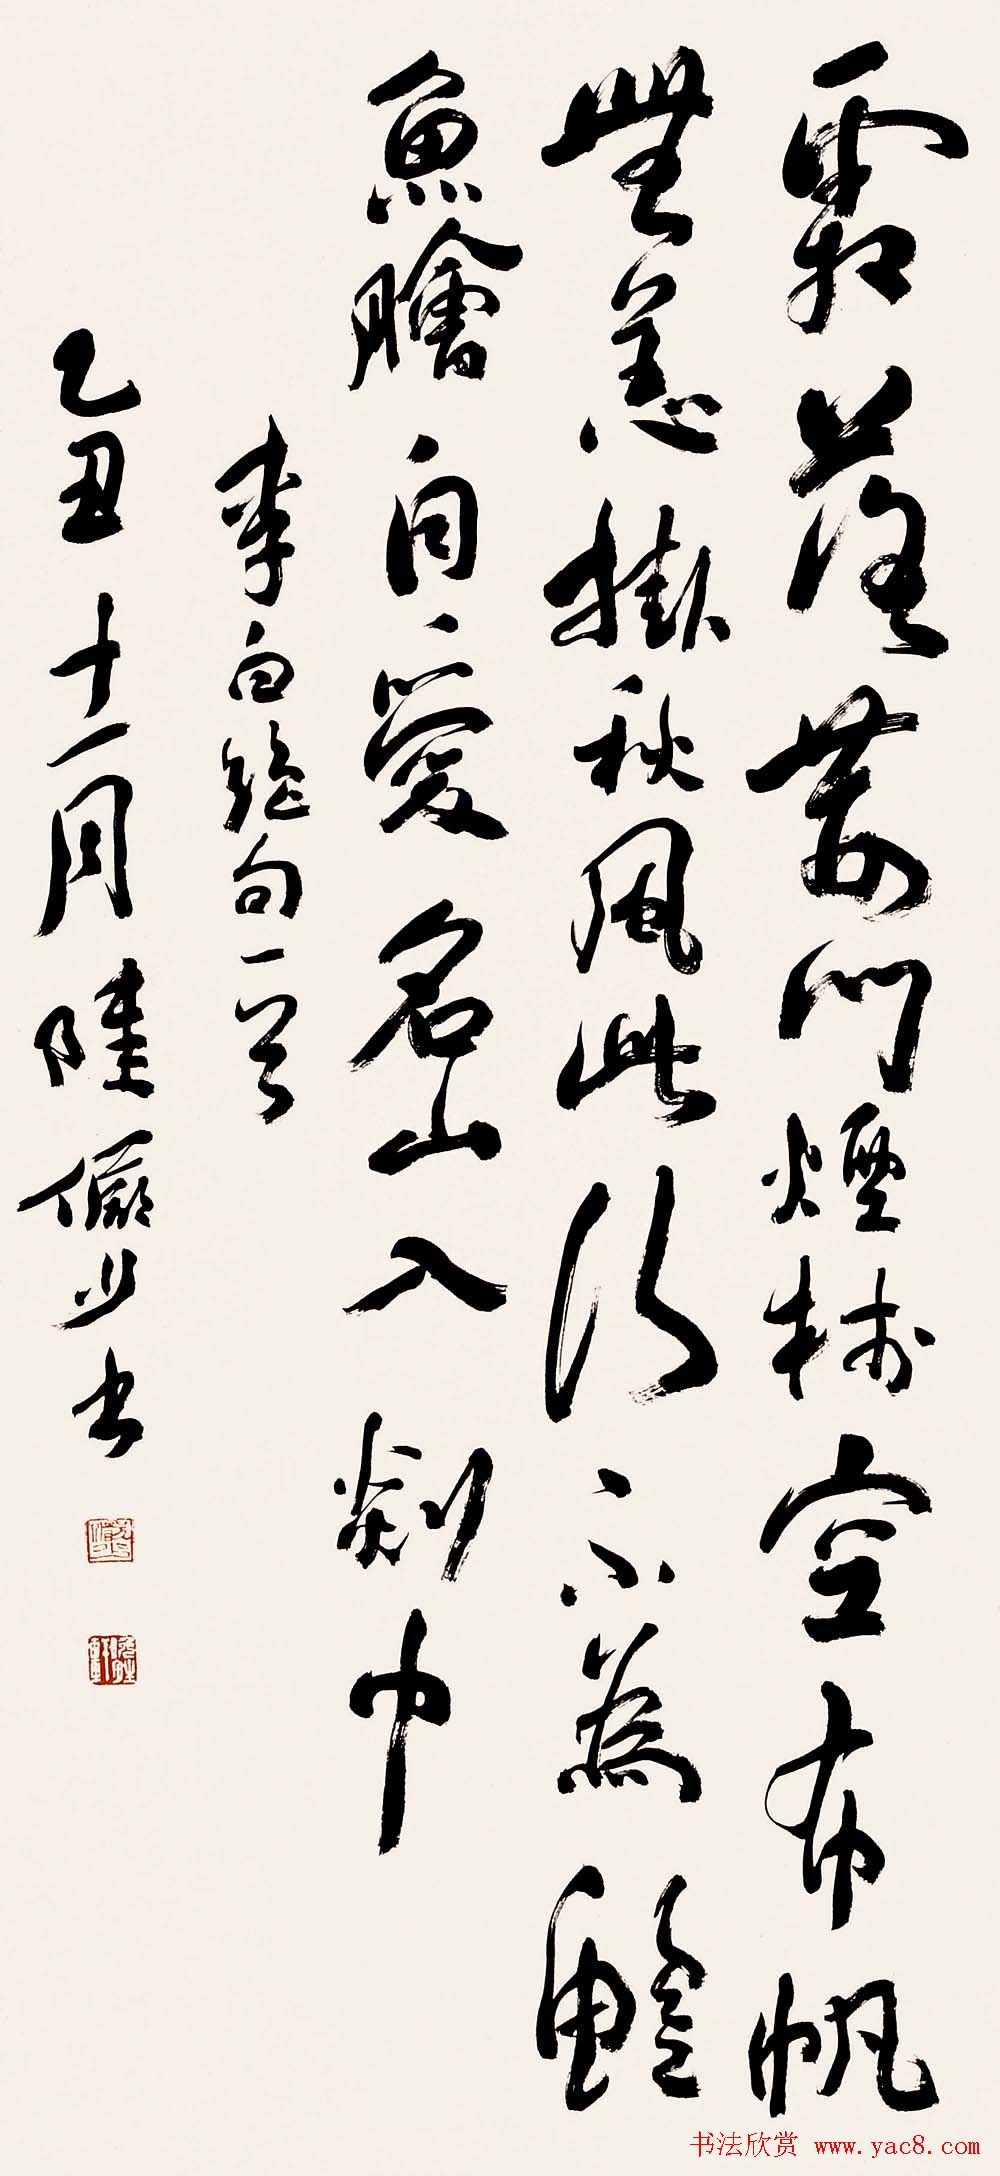 霜落荊門煙樹空布帆
無恙掛秋風此行不為鱸
魚膾自愛名山入剡中
李白絕句一首
乙丑十一月陸儼少書
书法欣赏 www.yac8.com